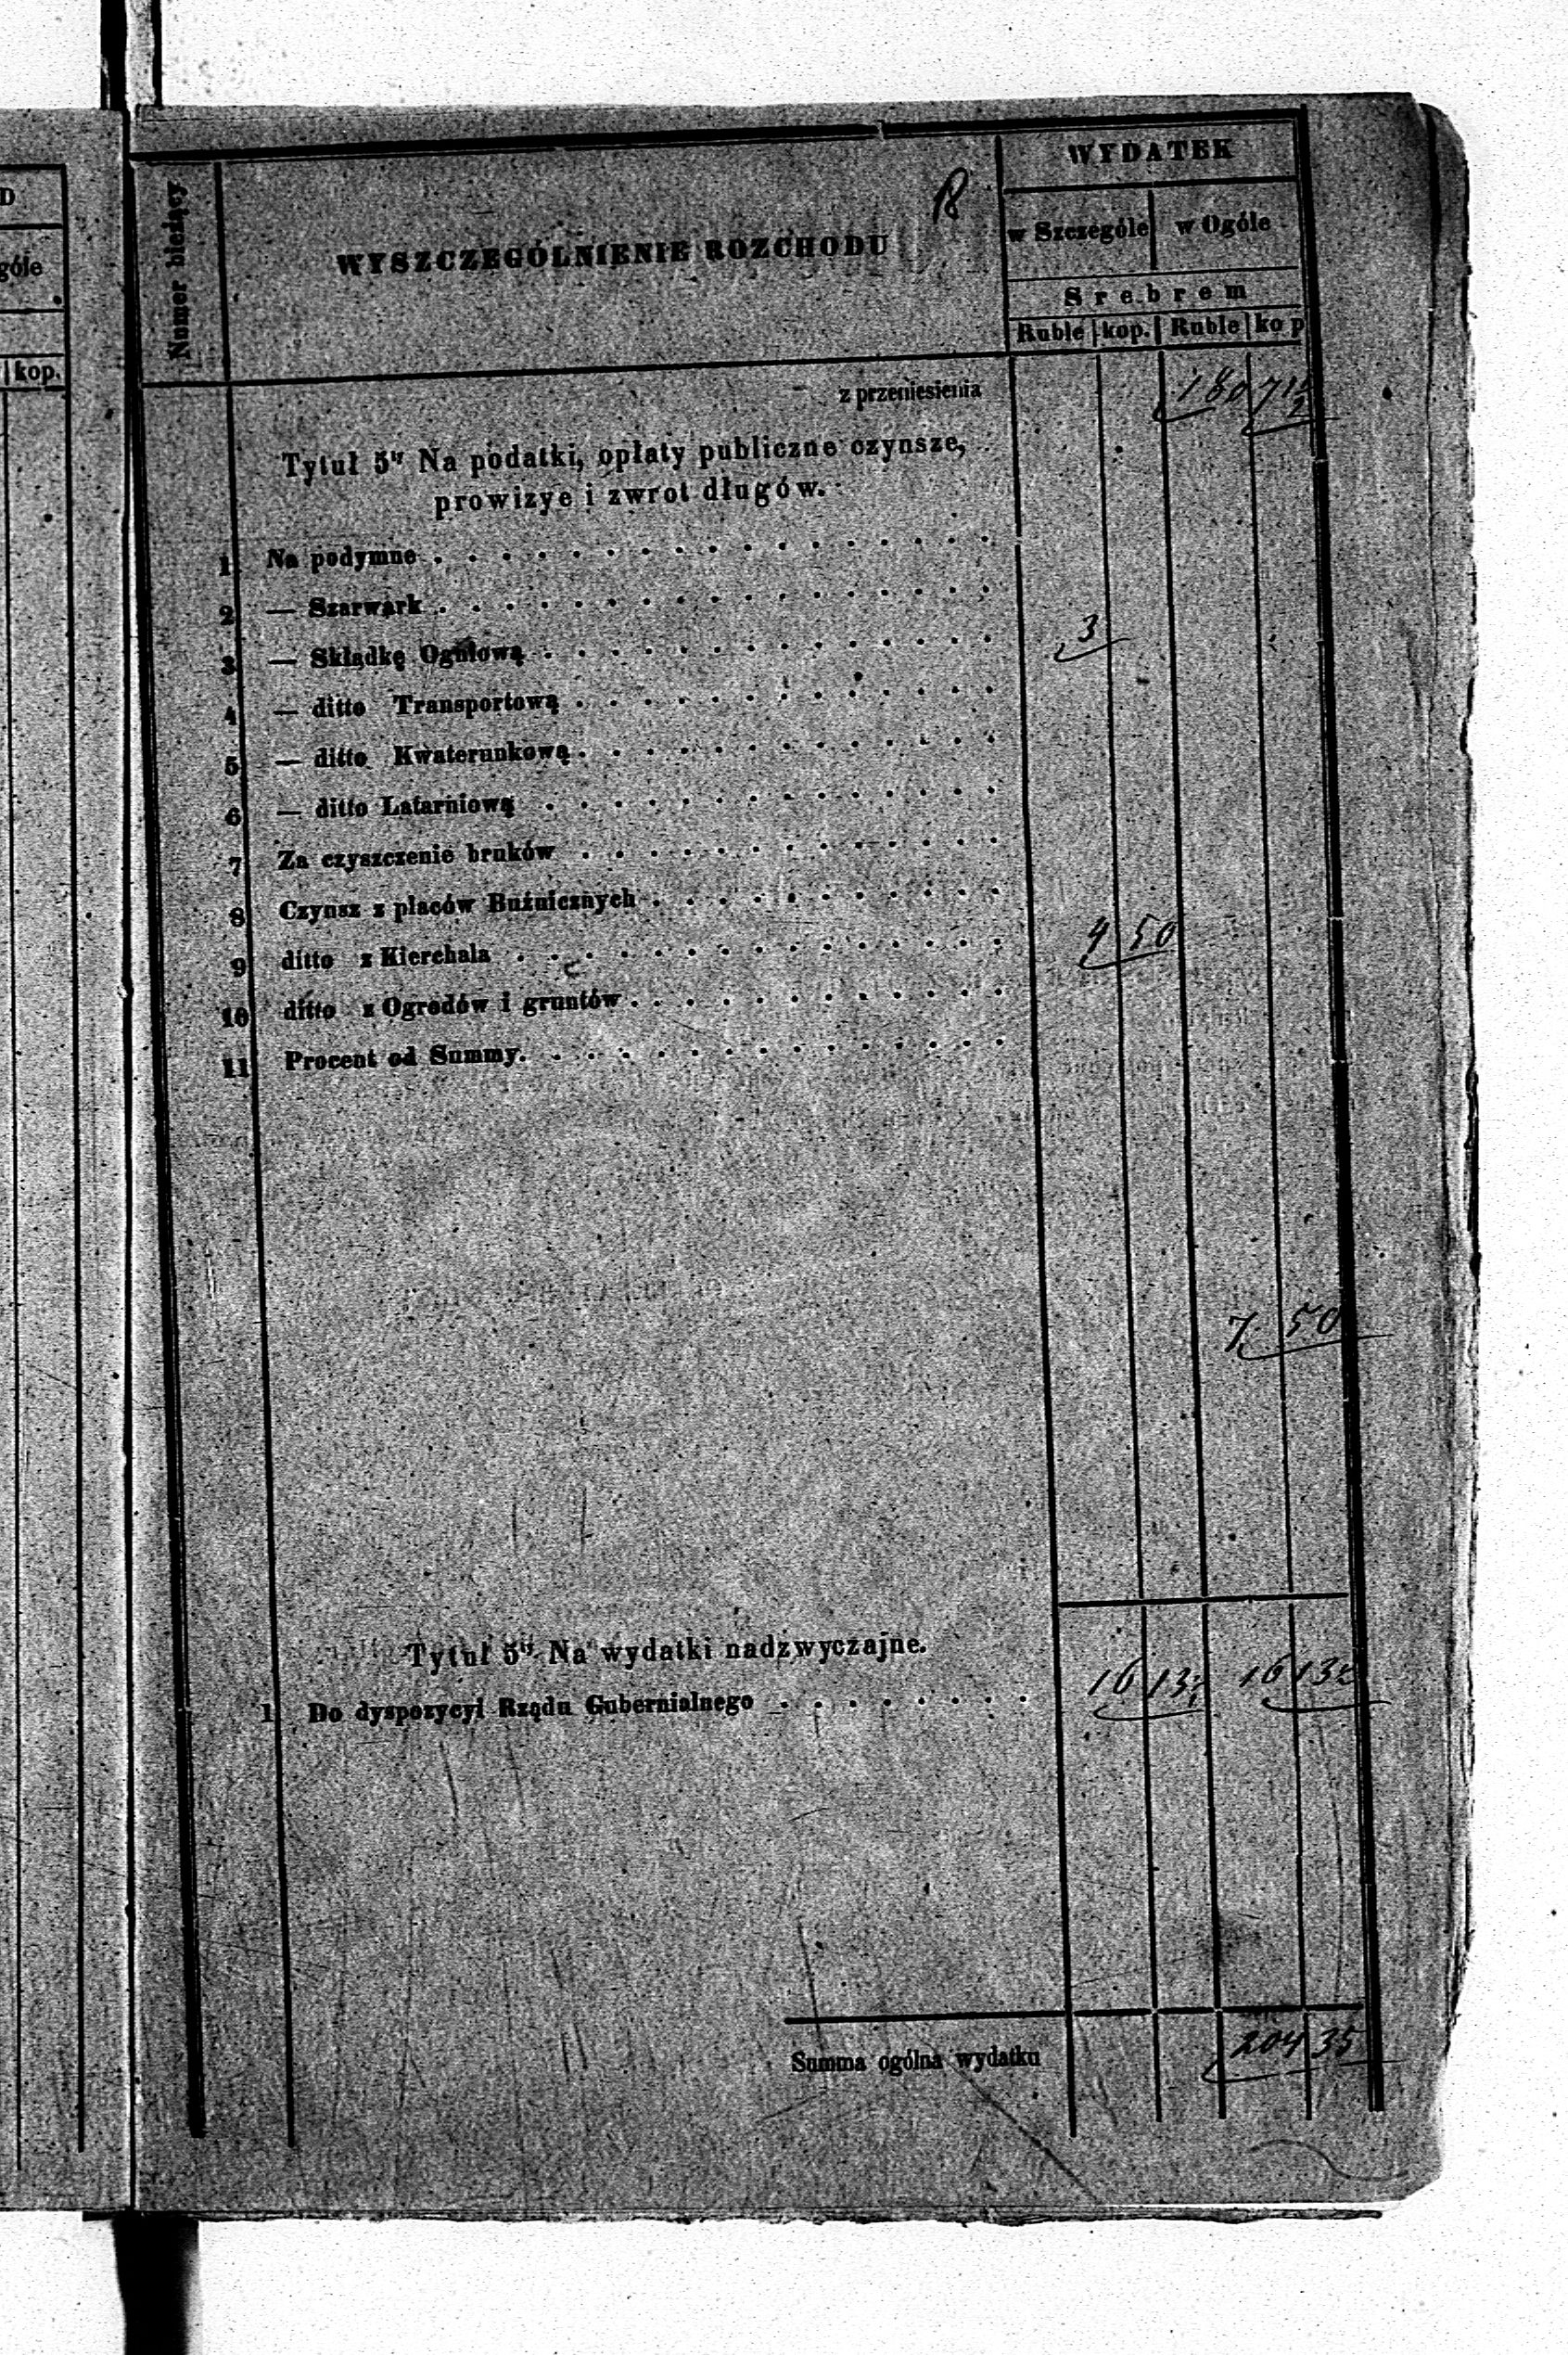 D
góle
kop.
18
Numer bieżący
WYSZCZEGÓLNIENIE ROZCHODU
WYDATEK
w Szczególe w Ogóle
Srebrem
Ruble kop. Ruble kop
z przeniesienia 180 71½
Tytuł 5ty Na podatki, opłaty publiczne czynsze,
prowizye i zwrot długów.
1 Na podymne
2 — Szarwark
3 — Składkę Ogniową 3
4 — ditto Transportową
5 — ditto Kwaterunkową
6 — ditto Latarniową
7 Za czyszczenie bruków
8 Czynsz z placów Bużnicznych
9 ditto z Kierchala 4 50
10 ditto z Ogrodów i gruntów
11 Procent od Summy
7 50
Tytuł 5ty Na wydatki nadzwyczajne.
1 Do dyspozycyi Rządu Gubernialnego 16 13½ 16 13½
Summa ogólna wydatku 204 35